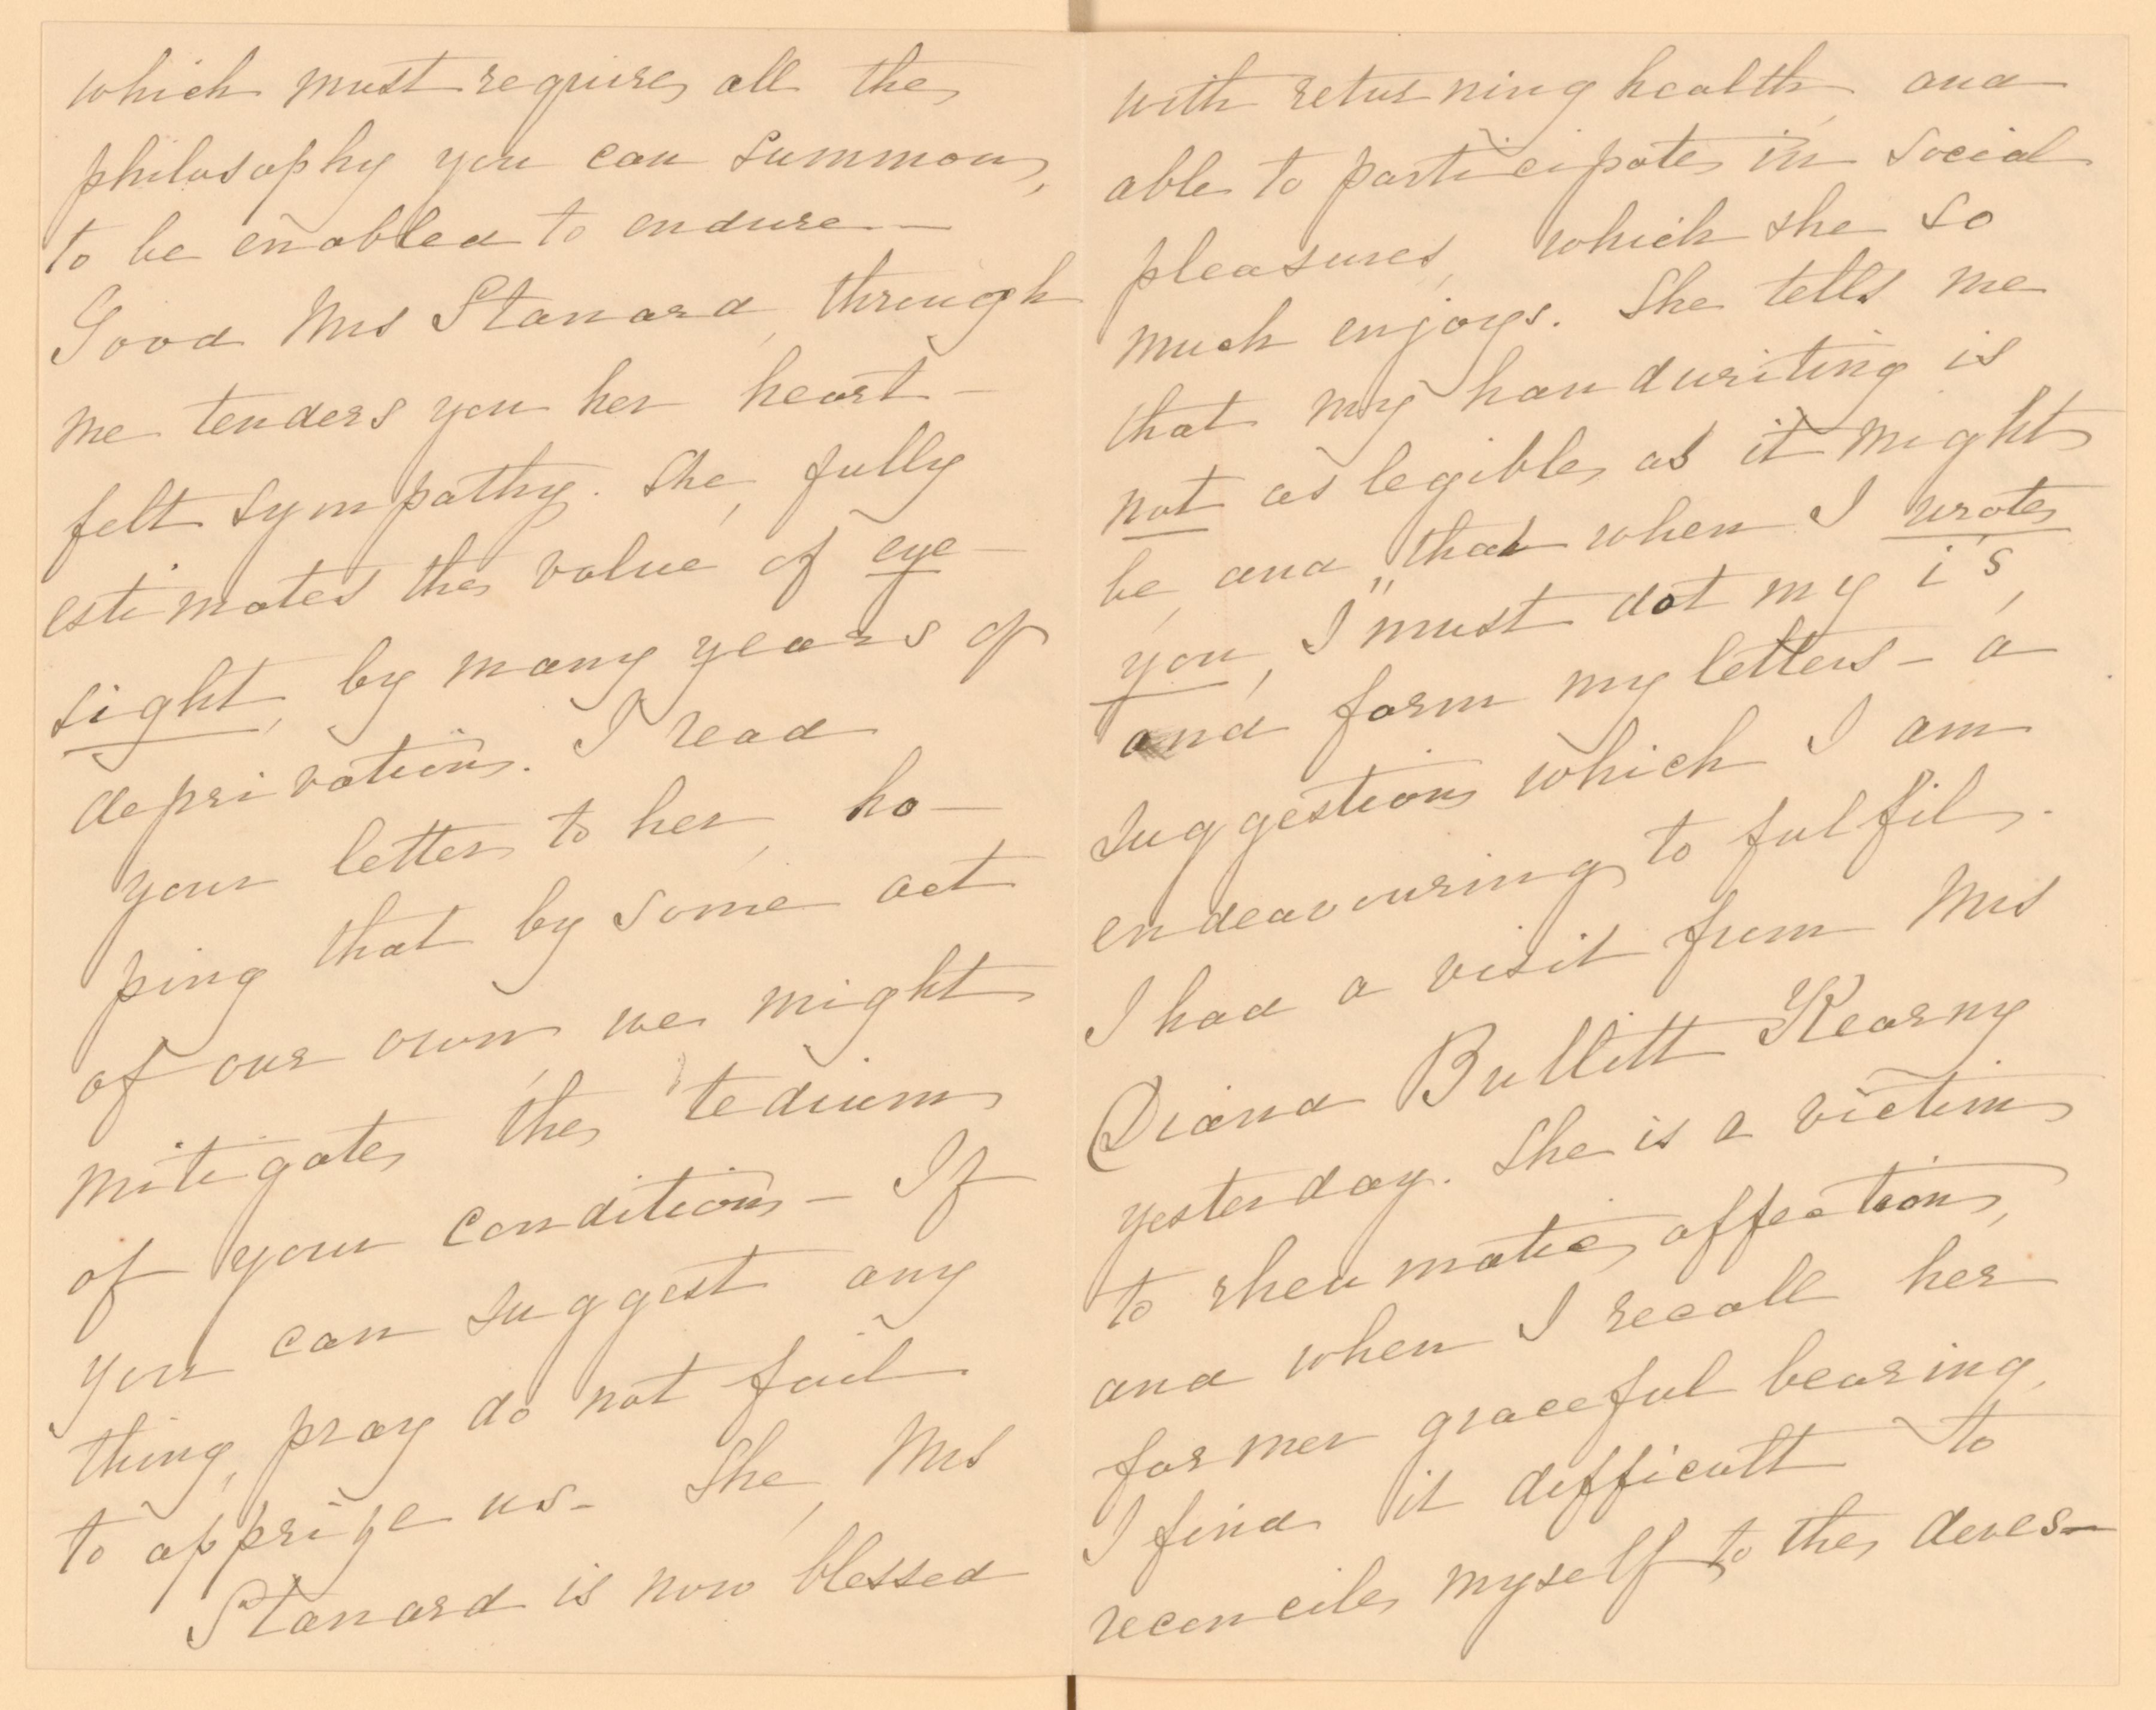 which must require all the
philosophy you can summon,
to be enabled to endure—
Good Mrs Stanard, through
me tenders you her heart-
felt sympathy. She, fully
estimates the value of eye-
sight, by many years of
deprivation. I read
your letter to her, ho-
ping that by some act
of our own, we might
mitigate the tedium
of your condition— If
you can suggest any
thing, pray do not fail
to apprize us— She, Mrs
Stanard is now blessed
with returning health, and
able to participate in social
pleasures, which she so
much enjoys. She tells me
that my handwriting is
not as legible, as it might
be, and "that when I wrote
you, I" must dot my i's,
and form my letters— a
suggestion which I am
endeavouring to fulfil.
I had a visit from Mrs
Diana Bullitt Kearny
yesterday. She is a victim
to rheumatic affection,
and when I recall her
former graceful bearing,
I find it difficult to
reconcile myself to the